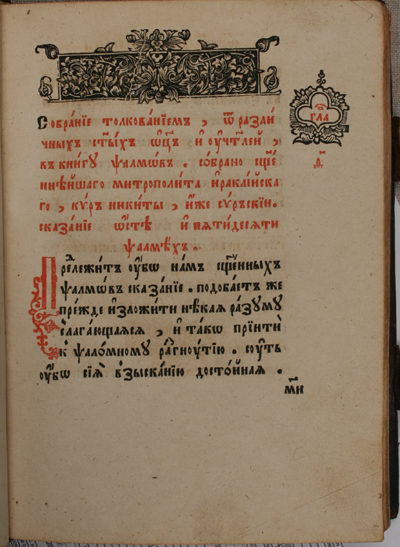 Собра́нїе толкова́нїемъ, ѿ разли́
чныхъ ст҃ы́хъ ѻ҆ц҃ъ и҆ ᲂу҆чт҃лей,
въ кни́гу ѱалмѡ́въ. собрано сщ҃е
ннѣ́йшаго митрополи́та и҆ракли́йска
го, ку́ръ ники́ты, и҆́же су́рьскїи.
сказа́нїе ѡ҆ стѣ̀ и҆ пѧти́десѧти
ѱалмѣ́хъ.
гла
а҃.
Прележи́тъ ᲂу҆́бѡ на́мъ сщ҃е́нныхъ
ѱалмѡ́въ сказа́нїе. подоба́етъ же
пре́жде и҆зложи́ти нѣ́каѧ ра́зуму
слага́ющаѧсѧ, и҆ та́кѡ прїитѝ
к ѱало́мному рагноу́тїю. соу́ть
ᲂу҆́бѡ сїѧ̀ взыска́нїю досто́йнаѧ.
мн